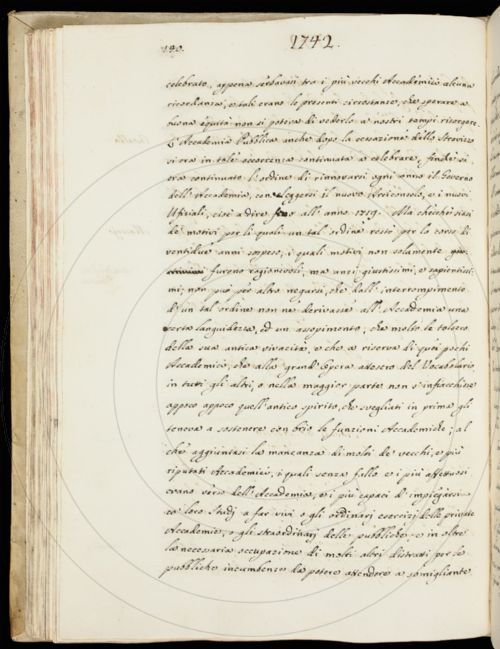 190.
1742.
celebrato, appena serbavasi tra i più vecchi Accademici alcuna
ricordanza, e tali erano le presenti circostanze, che sperare a
buona equità non si poteva di vederlo a nostri tempi risorgere.
L'Accademia Pubblica anche dopo la cessazione dello Stravizzo
si era in tale accorcenza continuata a celebrare, finchè si
era continuato l'ordine di rinnovarsi ogni anno il Governo
dell'Accademia, con eleggersi il nuovo Arciconsolo, e i nuovi
Ufiziali, cioè a dire fino all'anno 1719. Ma chècchè siasi
de' motivi per li quali un tal ordine restò per lo corso di
ventidue anni sospeso, i quali motivi non solamente
furono ragionevoli, ma anzi giustissimi, e sapientissi-
mi, non può più altro negarsi, che dall'interrompimento
d'un tal ordine non ne derivasse all'Accademia una
certa languidezza, ed un assopimento, che molto le tolsero
della sua antica vivacità, e che a riserva di quei pochi
Accademici, che alla grand'Opera attesero del Vocabolario,
in tutti gli altri, o nella maggior parte non s'infiacchisse
appoco appoco quell'antico spirito, che svegliati in prima gli
teneva a sostenere con brio le funzioni Accademiche; al
che aggiuntasi la mancanza di molti de' vecchi, e più
riputati Accademici, i quali senza fallo e i più affettuosi
erano verso dell'Accademia, e i più capaci d'impiegare
i loro studj a far vivi o gli ordinarj esercizj delle private
Accademie, o gli straordinarj delle pubbliche, e in oltre
la necessaria occupazione di molti altri distratti per le
pubbliche incumbenze da potere attendere a somigliante